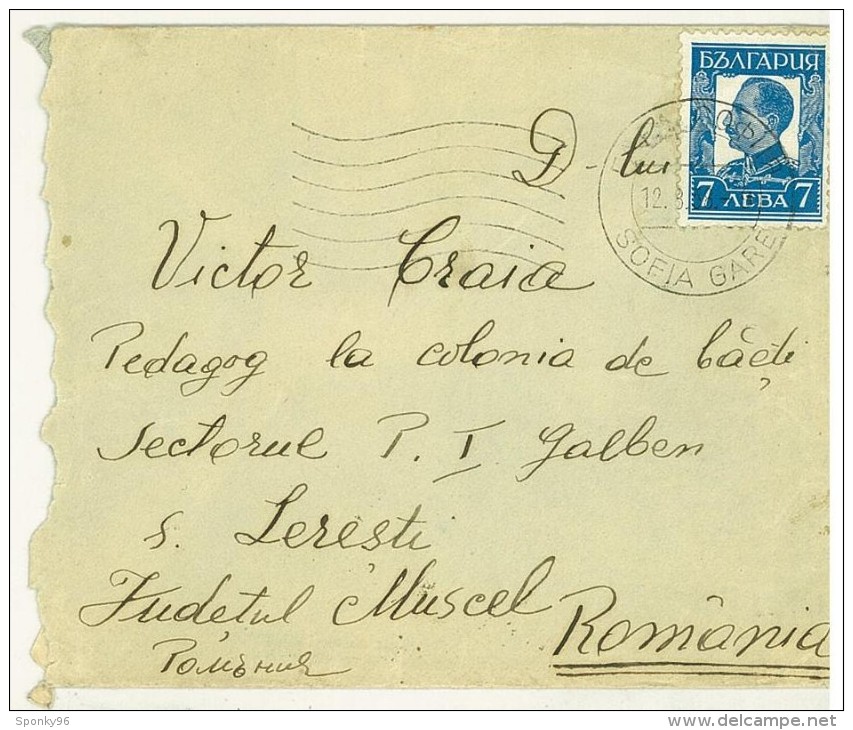 БЪЛГАРИЯ
7 ЛЕВА 7
SOFIA GARE
D-lui
Victor Craia
Pedagog la colonia de băeți
Sectorul P. I Galben
s. Leresti
Județul Muscel
România
Ромъния
Sponky96
www.delcampe.net